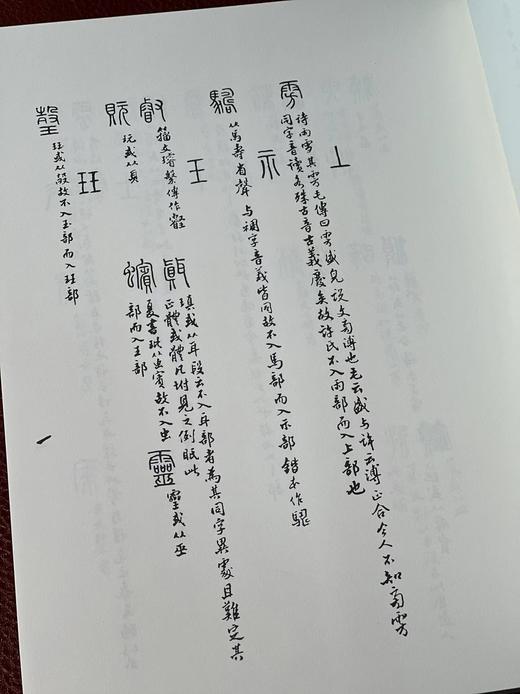 丄
雱
詩雨雪其雱毛傳曰雱盛皃說文旁溥也毛云盛與許云溥正合今人不知旁雱
同字音讀各殊古音古義廢矣故許氏不入雨部而入上部也
示
从馬壽省聲 与禂字音義皆同故不入馬部而入示部 鍇本作
王
叡
籀文璿繫傳作壡
瑱或从耳段云不入耳部者為其同字異處且難定其
正體或體凡附見之例眡此
貦
玩或从貝
蠙
夏書玭从虫賓故不入虫
部而入王部
靈
靈或从巫
珏
瑴
珏或从㱿故不入玉部而入珏部